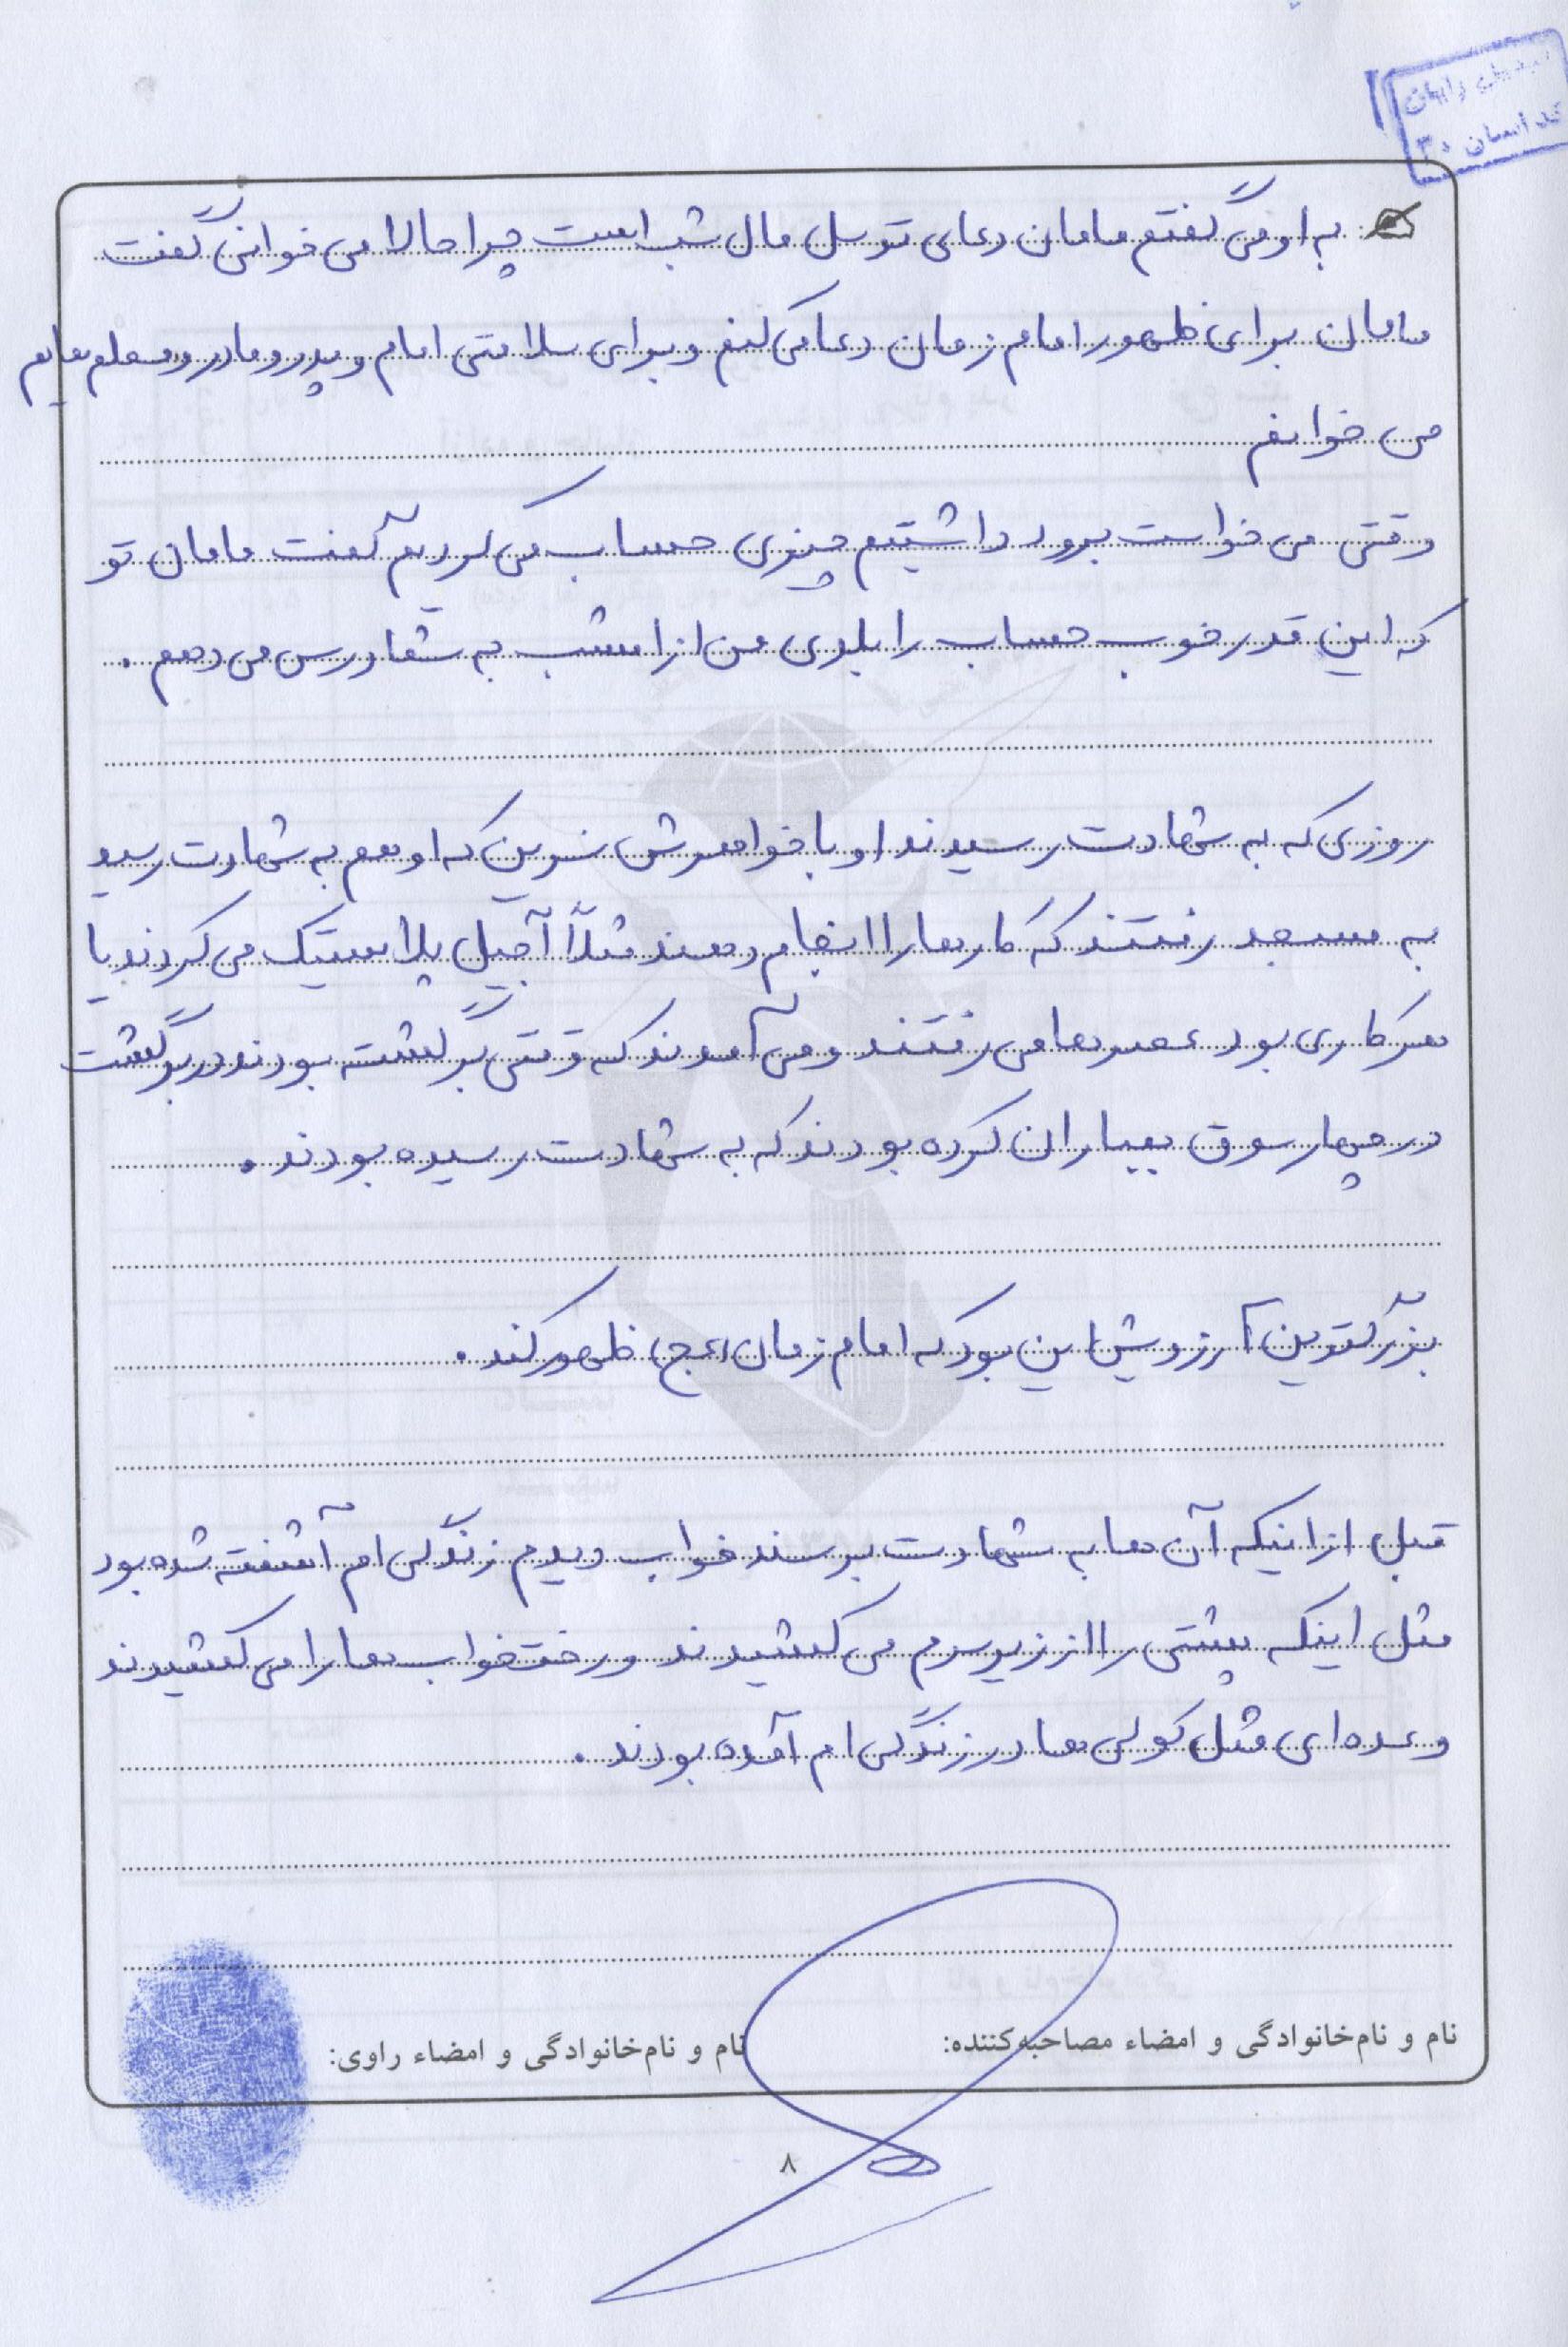 کد استان ۳۰
به او می گفتم مامان دعای توسل مال شب است چرا حالا می خوانی گفت
مامان برای ظهور امام زمان دعا می کنم و برای سلامتی امام و پدر و مادر و معلم هایم
می خوانم
وقتی می خواست برود داشتیم چیزی حساب می کردیم گفت مامان تو
که این قدر خوب حساب را بلدی من از امشب به شما درس می دهم .
روزی که به شهادت رسیدند او با خواهرش نسرین که او هم به شهادت رسید
به مسجد رفتند که کارها را انجام دهند مثلاً آجیل پلاستیک می کردند یا
هر کاری بود عصرها می رفتند و می آمدند که وقتی برگشته بودند در برگشت
در چهارسوق بمباران کرده بودند که به شهادت رسیده بودند .
بزرگترین آرزویش این بود که امام زمان (عج) ظهور کند .
قبل از اینکه آن ها به شهادت برسند خواب دیدم زندگی ام آشفته شده بود
مثل اینکه پشتی را از زیر سرم می کشیدند و رختخواب ها را می کشیدند
و عده ای مثل کولی ها در زندگی ام آمده بودند .
نام و نام‌خانوادگی و امضاء مصاحبه‌کننده: نام و نام‌خانوادگی و امضاء راوی:
۸